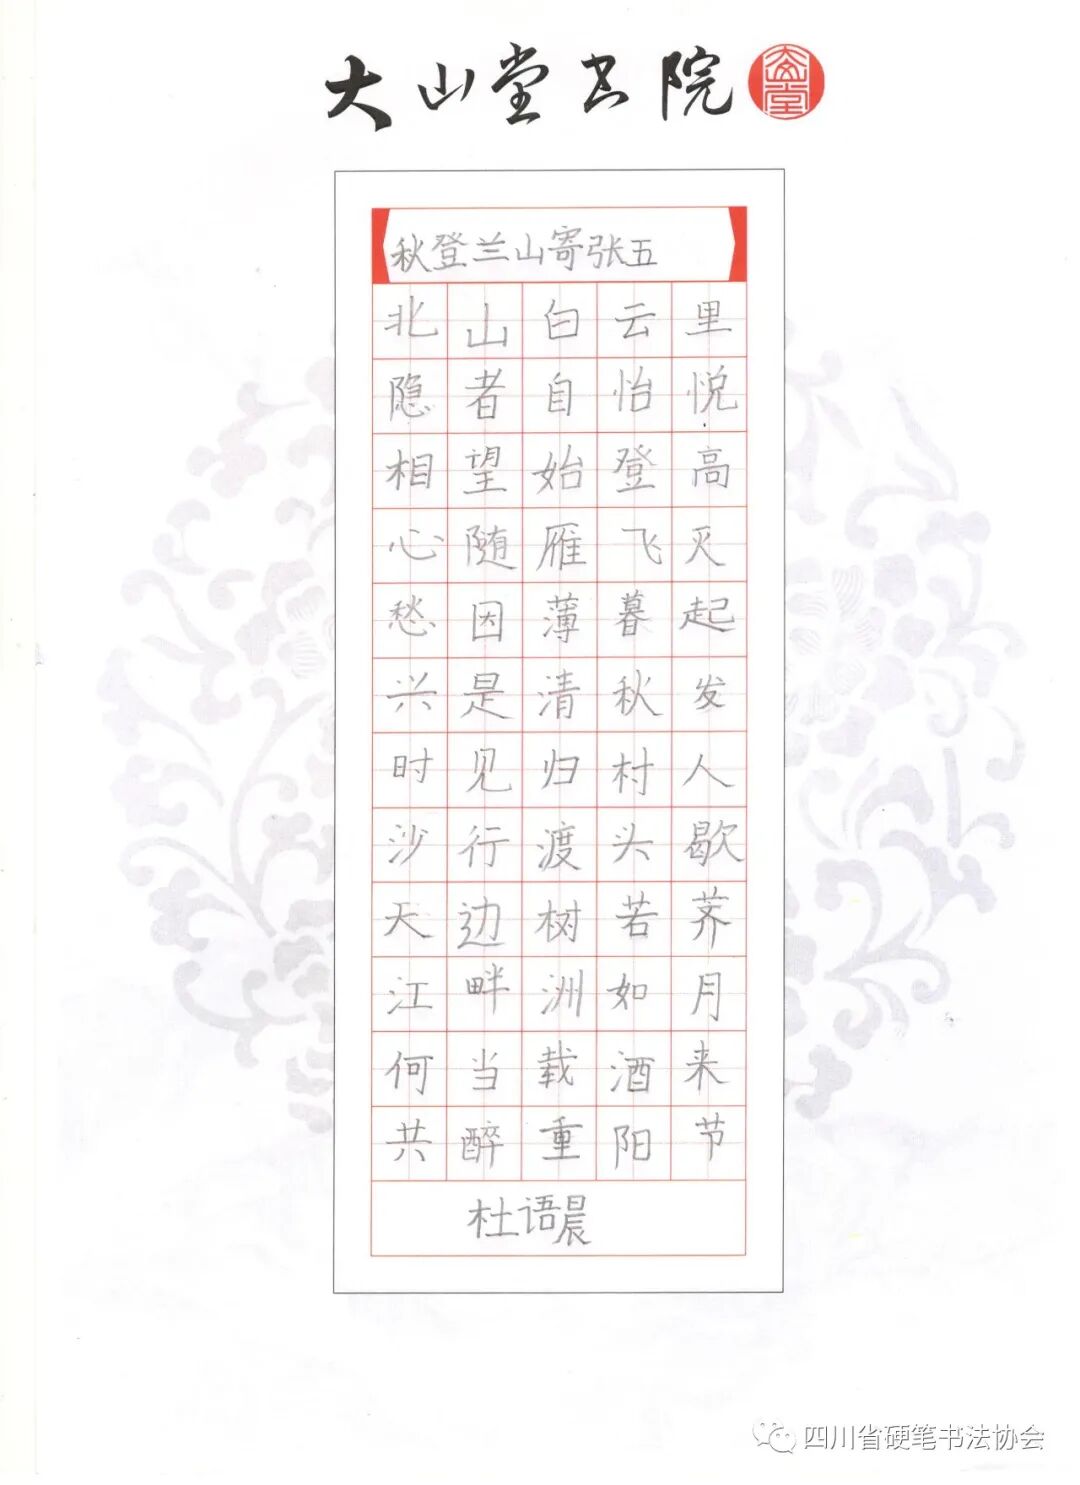 大山堂书院
大山堂
秋登兰山寄张五
北山白云里
隐者自怡悦
相望始登高
心随雁飞灭
愁因薄暮起
兴是清秋发
时见归村人
沙行渡头歇
天边树若荠
江畔洲如月
何当载酒来
共醉重阳节
杜语晨
四川省硬笔书法协会